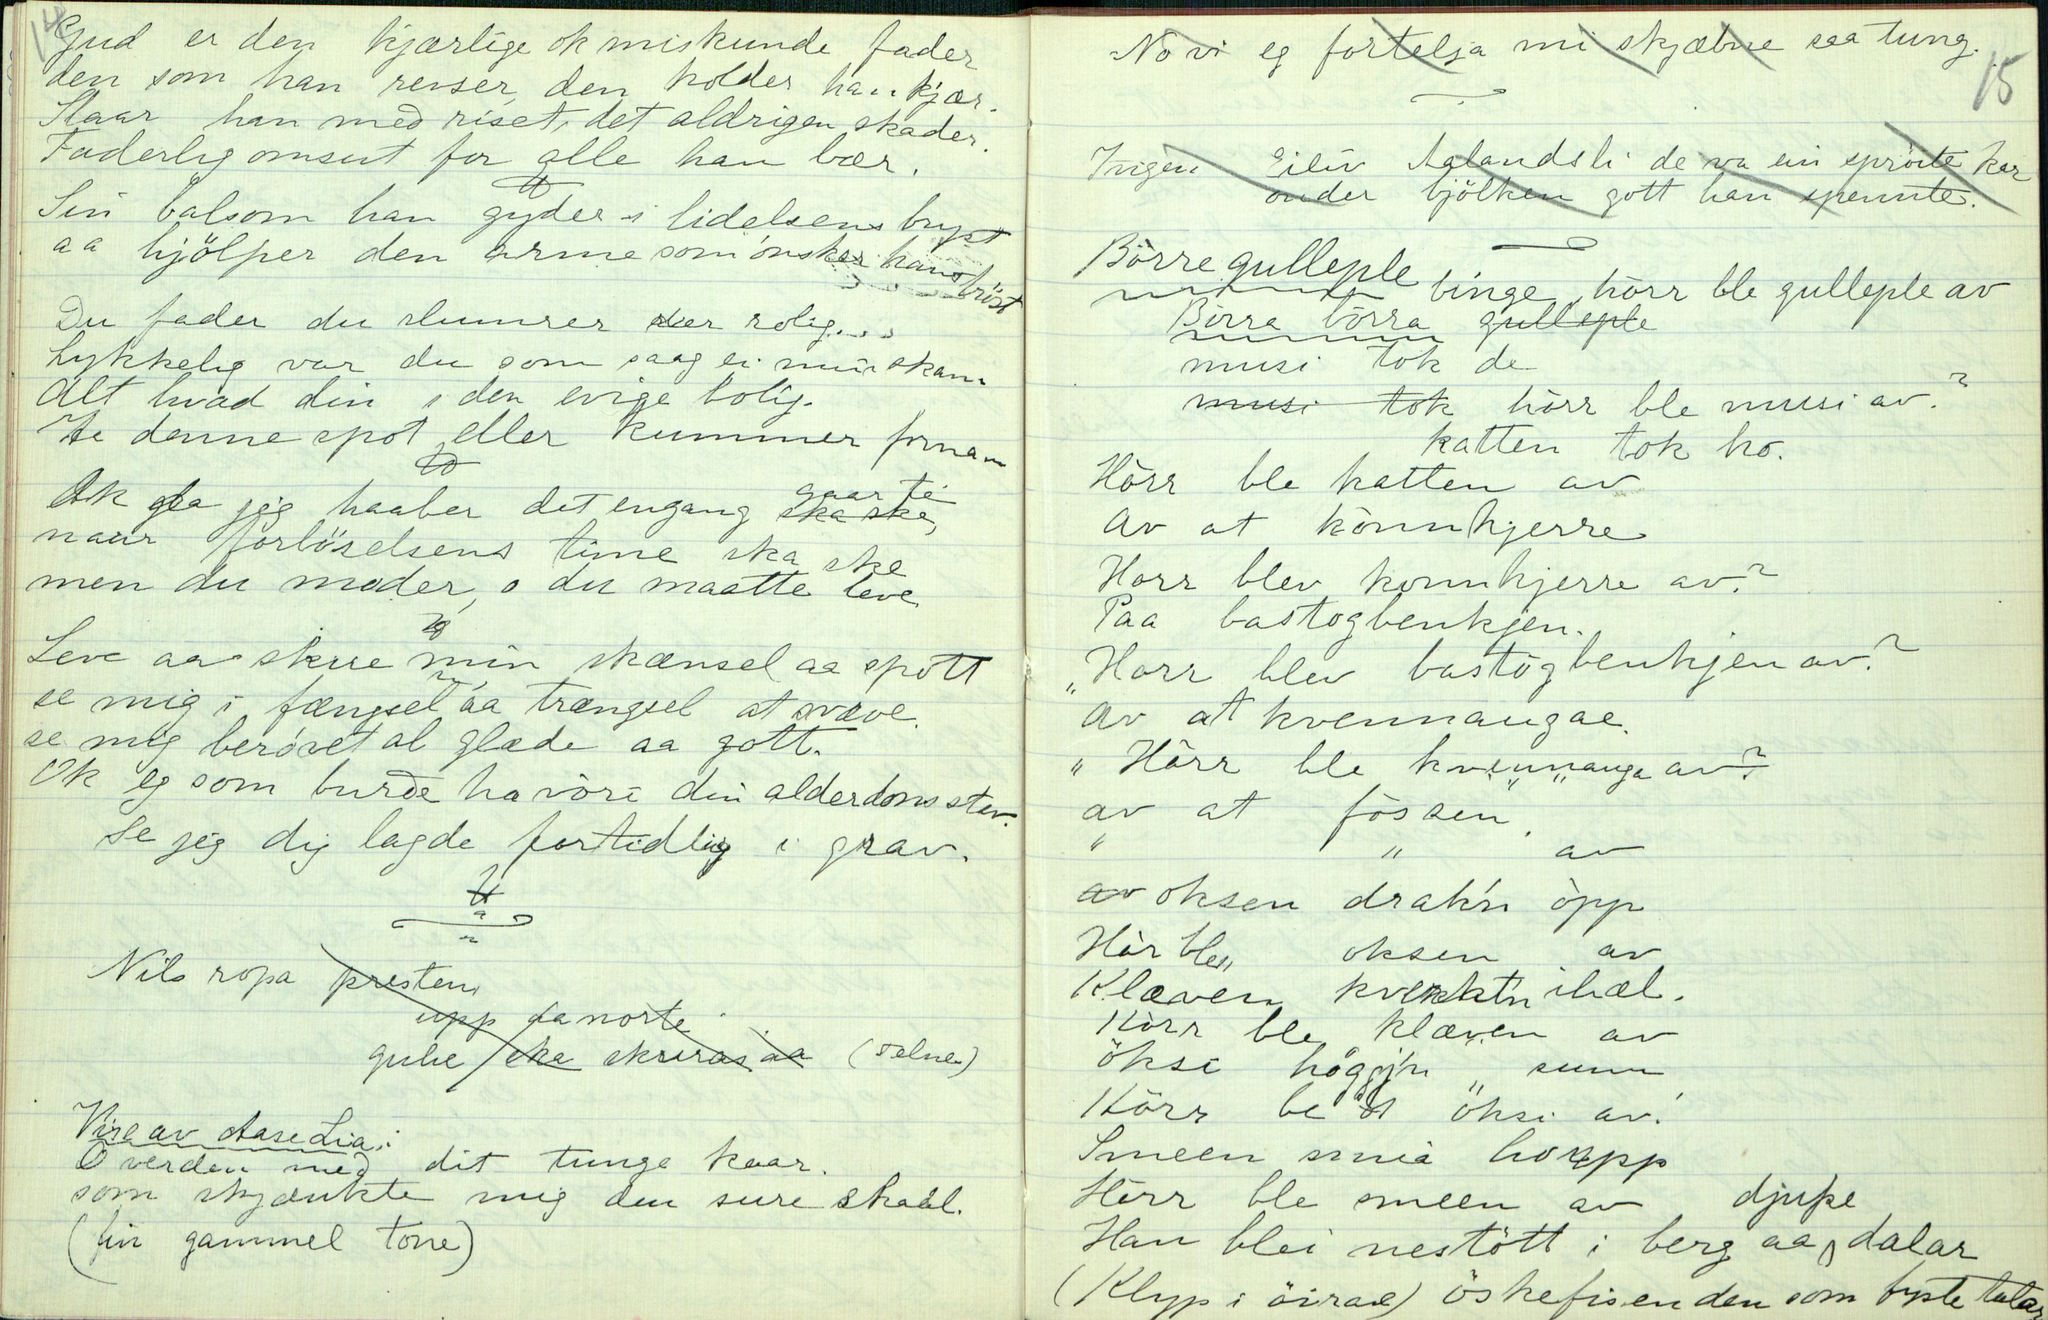 14
Gud er den kjærlige ok miskunde fader
den som han renser, den holder han kjær.
Slaar han med riset, det aldrigen skader.
Faderlig omsut for alle han bær.
Sin balsom han gyder i lidelsens bryst
aa hjölper den arme som ónsker hans tröst
Du fader du slumrer der rolig...
Lykkelig var du som saag ei min skam
Alt hvad din i den evige bolig.
Ie denne spot eller kummer fornam
Ak gla jeg haaber det engang gaar te
ska ske,
naar forlöselsens time ska ske
men du moder, o du maatte leve
Leve aa skue min skænsel aa spott
se mig i fængsel aa trængsel at svæve.
se mig berövet al glæde aa gott.
Ok eg som burde ha vöri din alderdoms stav.
Se jeg dig lagde fortidlig i grav.
Nils ropa presten
upp da norte
gube ska skrivas aa (Telne)
Vise av Aase Lia:
O verden med dit tunge kaar.
som skjænkte mig den sure skaal.
(fin gammel tone)
15
No vi eg fortelja mi skjæbne saa tung.
Ingen Eiliv Aalandsli de va ein spröite kar
onder bjölken gott han spennte.
Börre gulleple binge, hörr ble gulleple av
Börra börra gulleple
musi tok de
musi tok hörr ble musi av?
katten tok ho.
Hörr ble katten av
Av at könnkjerre
Horr blev konnkjerre av?
Paa bastogbenkjen.
"Horr blev bastogbenkjen av?
Av at kvennaugae.
" Hörr ble kvennauga av?
av at fössen.
" " av
av oksen drak'n òpp
Hör ble oksen av
Klæven kvekkt'n ihæl.
Körr ble klæven av
öksi höggj'n sunn
Körr be öksi av!
Smeen smia ho opp
Hörr ble smeen av
Han blei nestött i berg aa djupe dalar
(Klyp i öirae) öskefisen den som fyste talar